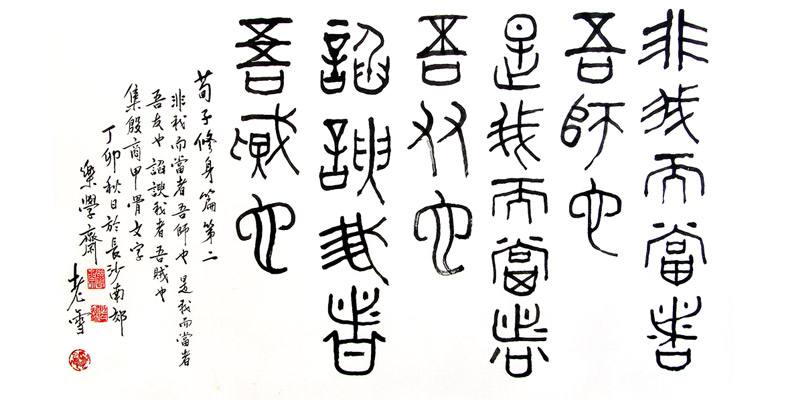 非我而當者
吾師也
是我而當者
吾友也
諂諛我者
吾賊也
荀子修身篇第二
非我而當者吾師也 是我而當者
吾友也 諂諛我者吾賊也
集殷商甲骨文字
丁卯秋日於長沙南郊
樂學齋 老雪